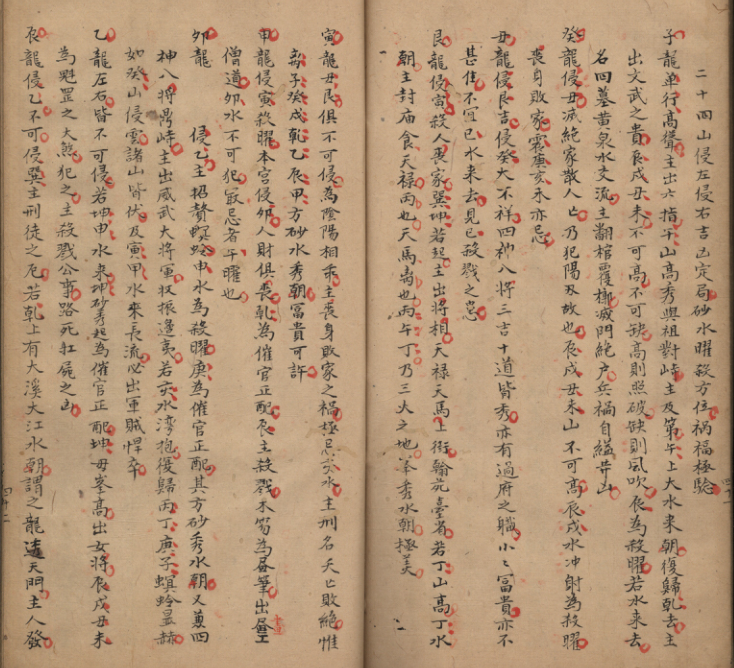 二十四山侵左侵右吉凶定局砂水曜殺方位祸福極驗
子龍单行高聳主出六指午山高秀與祖對峙主及第午上大水來朝復歸乾去主
出文武之貴辰戌丑未不可高不可缺高則照破缺則風吹辰為殺曜若水來去
名四墓黄泉水交流主翻棺覆槨滅門絶户兵禍自縊
癸龍侵丑滅絶家散人亡乃犯陽及故也辰戌丑未山不可高辰戌水冲射為殺曜
丧身敗家震庚亥未亦忌
丑龍侵艮吉侵癸大不祥四神八將三吉十道皆秀亦有過府之職小〻冨貴亦不
甚佳不宜巳水來去見巳殺戮之惡
艮龍侵寅殺人丧家巽坤若起主出將相天禄天馬上衔翰苑臺省若丁山高丁水
朝主封庙食天禄丙也天馬离也丙午丁乃三火之地峯秀水朝極美
寅龍丑艮俱不可侵為陰陽相乘主丧身敗家之禍極忌亥水主刑名夭亡敗絶惟
辛子癸戌乾乙辰甲方砂水秀朝冨貴可許
甲龍侵寅殺曜本宫侵卯人財俱丧乾為催官正配辰主殺戮木笏為昼筆出昼工
僧道卯水不可犯最忌者午曜也
卯龍　侵乙主招贅螟蛉申水為殺曜庚為催官正配其方砂秀水朝又蒹四
神八將禺峙主出威武大將軍权振邊夷若亥水湾抱復歸丙丁庚子螟蛉显赫
如癸山侵雲諸山皆伏及寅甲水來長流必出軍賊悍卒
乙龍左右皆不可侵若坤申水來坤砂秀起為催官正配坤母峯高出女將辰戌丑未
為魁罡之大煞犯之主殺戮公事路死扛屍之凶
辰龍侵乙不可侵巽主刑徒之厄若乾上有大溪大江水朝謂之龍逹天門主人發